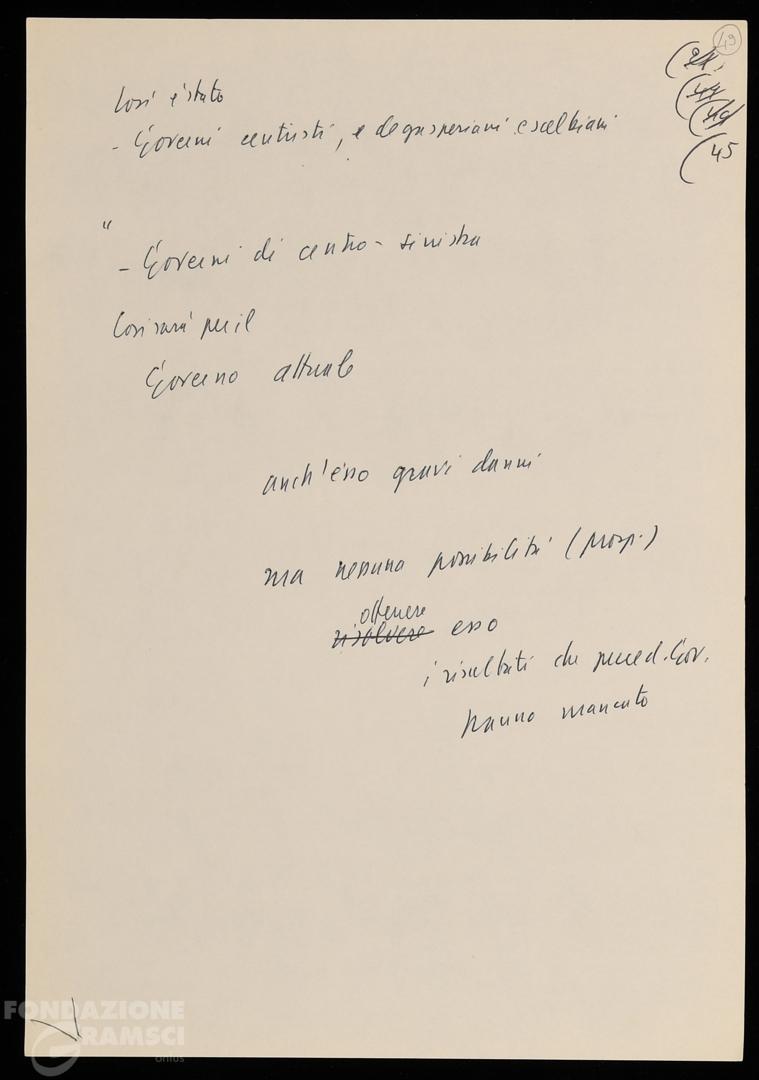 49
(45
Così è stato
- Governi centristi, e degasperiani e scelbiani
"
- Governi di centro-sinistra
Così sarà per il
Governo attuale
anch'esso gravi danni
ma nessuna possibilità (prosp.)
ottenere
risolvere esso
i risultati che preced. Gov.
hanno mancato
FONDAZIONE
GRAMSCI
onlus